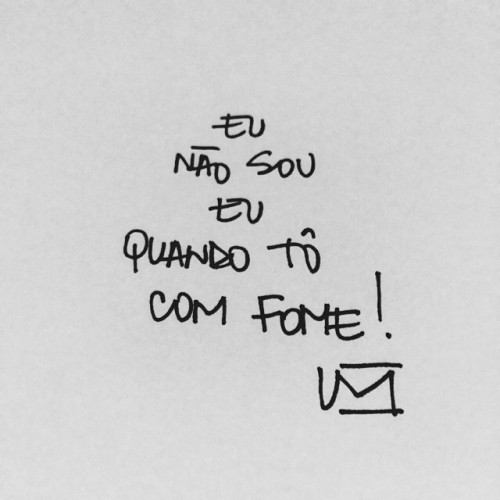 EU
NÃO SOU
EU
QUANDO TÔ
COM FOME!